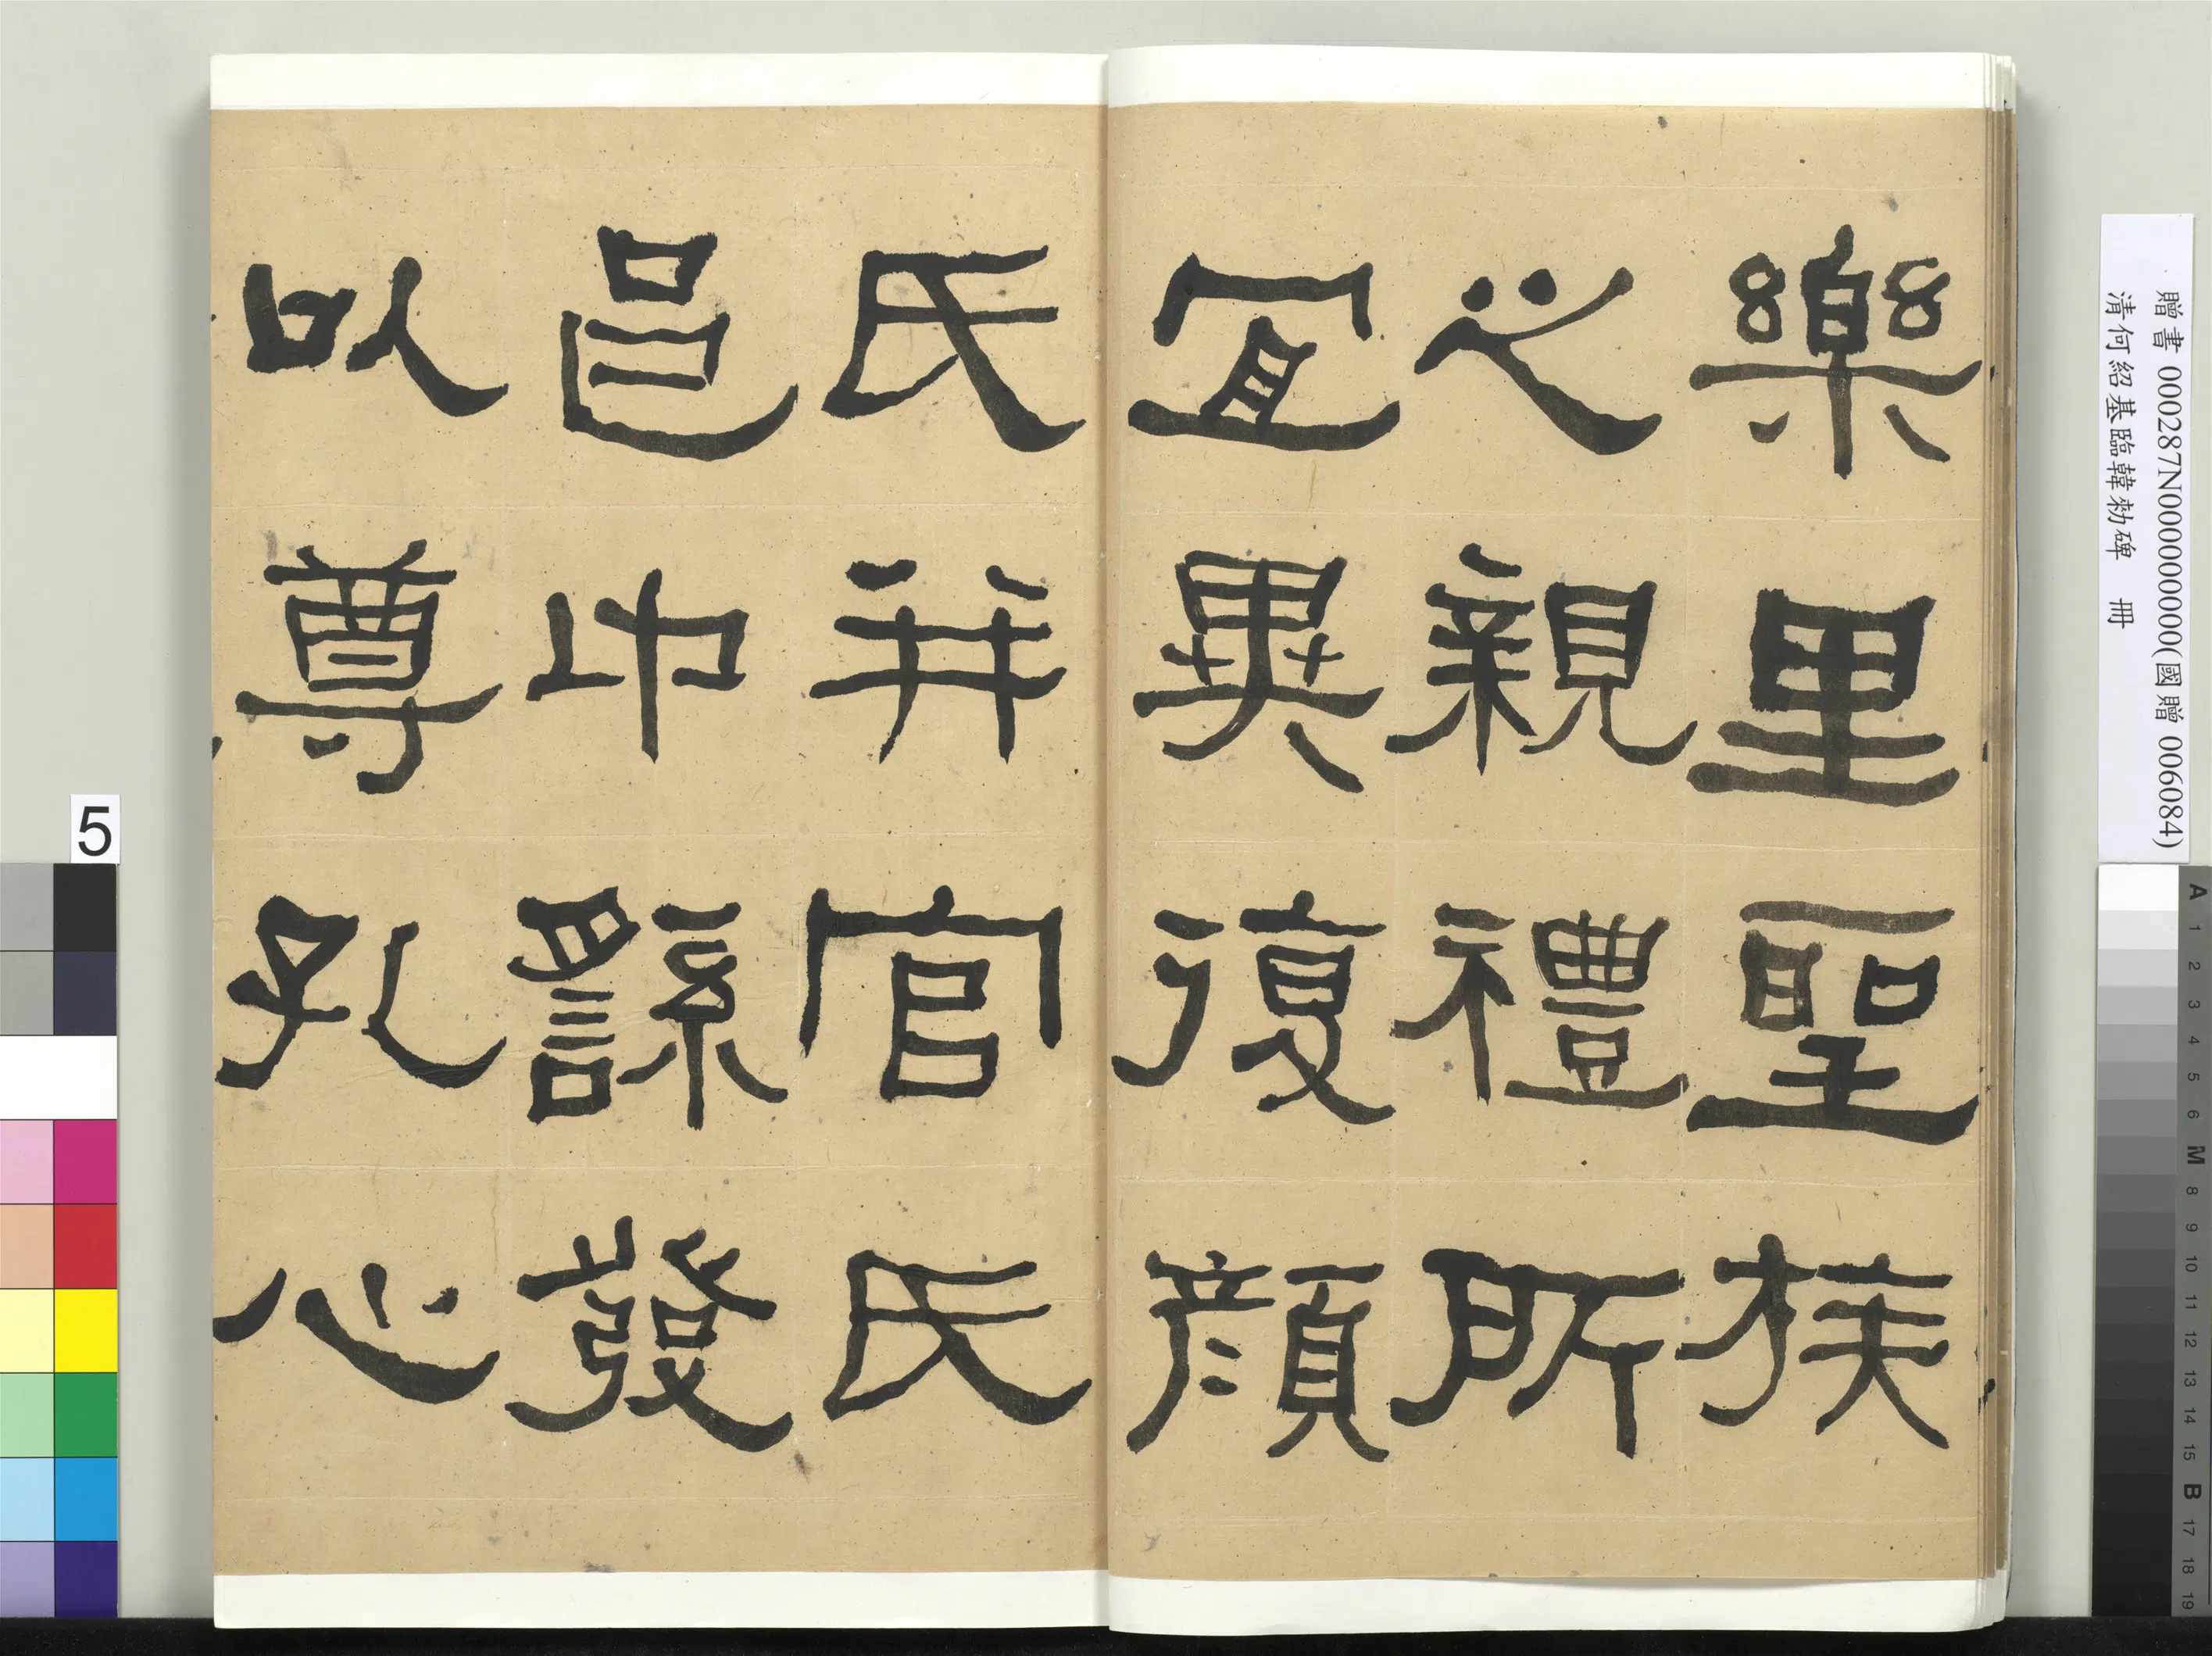 樂里聖族
之親禮所
宜異復顏
氏并官氏
邑中繇發
以尊孔心
5
贈書 000287N000000000(國贈 006084)
清何紹基臨韓勑碑 冊
A 1 2 3 4 5 6 M 8 9 10 11 12 13 14 15 B 17 18 19